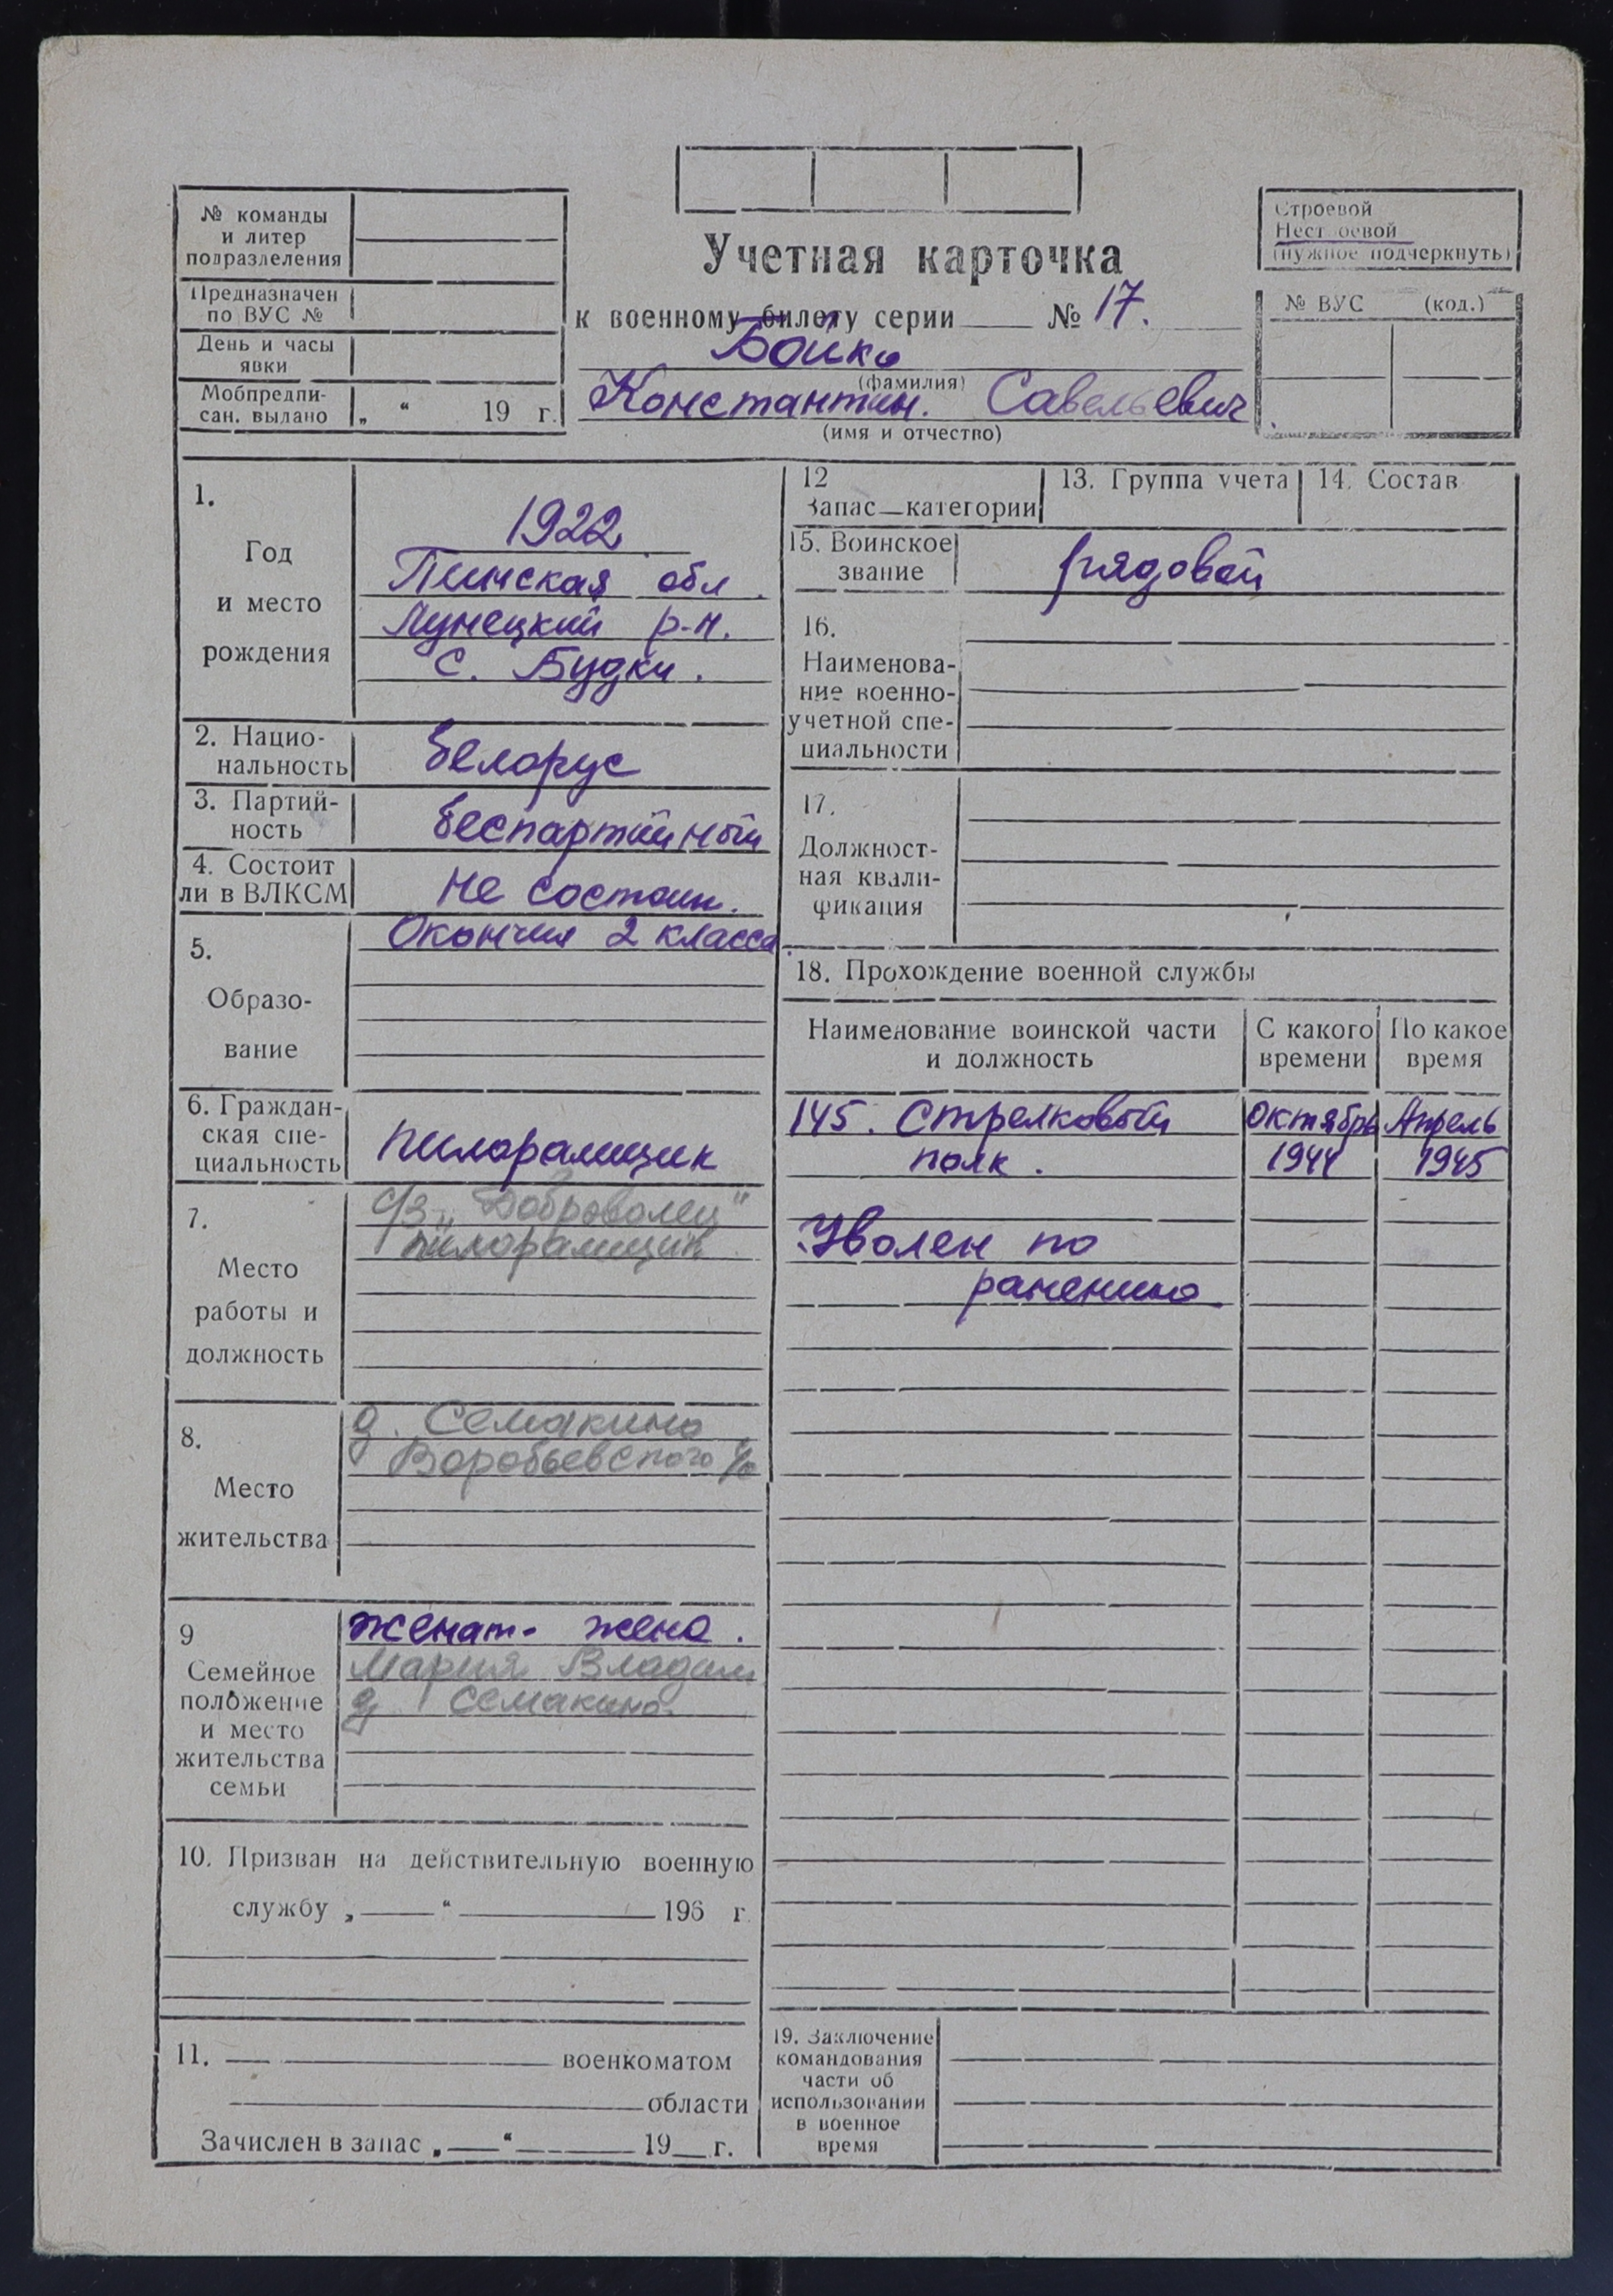 № команды
и литер
подразделения
Предназначен
по ВУС №
День и часы
явки
Мобпредпи-
сан. выдано „ “ 19 г.
Учетная карточка
к военному билету серии № 17.
Бойко
(фамилия)
Константин. Савельевич
(имя и отчество)
Строевой
Нестроевой
(нужное подчеркнуть)
№ ВУС (код.)
1.
Год
и место
рождения
1922
Пинская обл.
Лунецкий р-н.
с. Будки.
2. Нацио-
нальность
белорус
3. Партий-
ность
беспартийный
4. Состоит
ли в ВЛКСМ
Не состоит.
5.
Образо-
вание
Окончил 2 класса
6. Граждан-
ская спе-
циальность
пилорамщик
7.
Место
работы и
должность
с/з „Доброволец"
пилорамщик
8.
Место
жительства
д. Семакино
Воробьевского с/с
9
Семейное
положение
и место
жительства
семьи
женат- жена.
Мария Владим
д Семакино.
10. Призван на действительную военную
службу „ “ 196 г.
11. военкоматом
области
Зачислен в запас „ “ 19 г.
12
Запас категории
13. Группа учета
14. Состав
15. Воинское
звание
рядовой
16.
Наименова-
ние военно-
учетной спе-
циальности
17.
Должност-
ная квали-
фикация
18. Прохождение военной службы
Наименование воинской части
и должность
С какого
времени
По какое
время
145. Стрелковый Октябрь Апрель
полк. 1944 1945
Уволен по
ранению.
19. Заключение
командования
части об
использовании
в военное
время